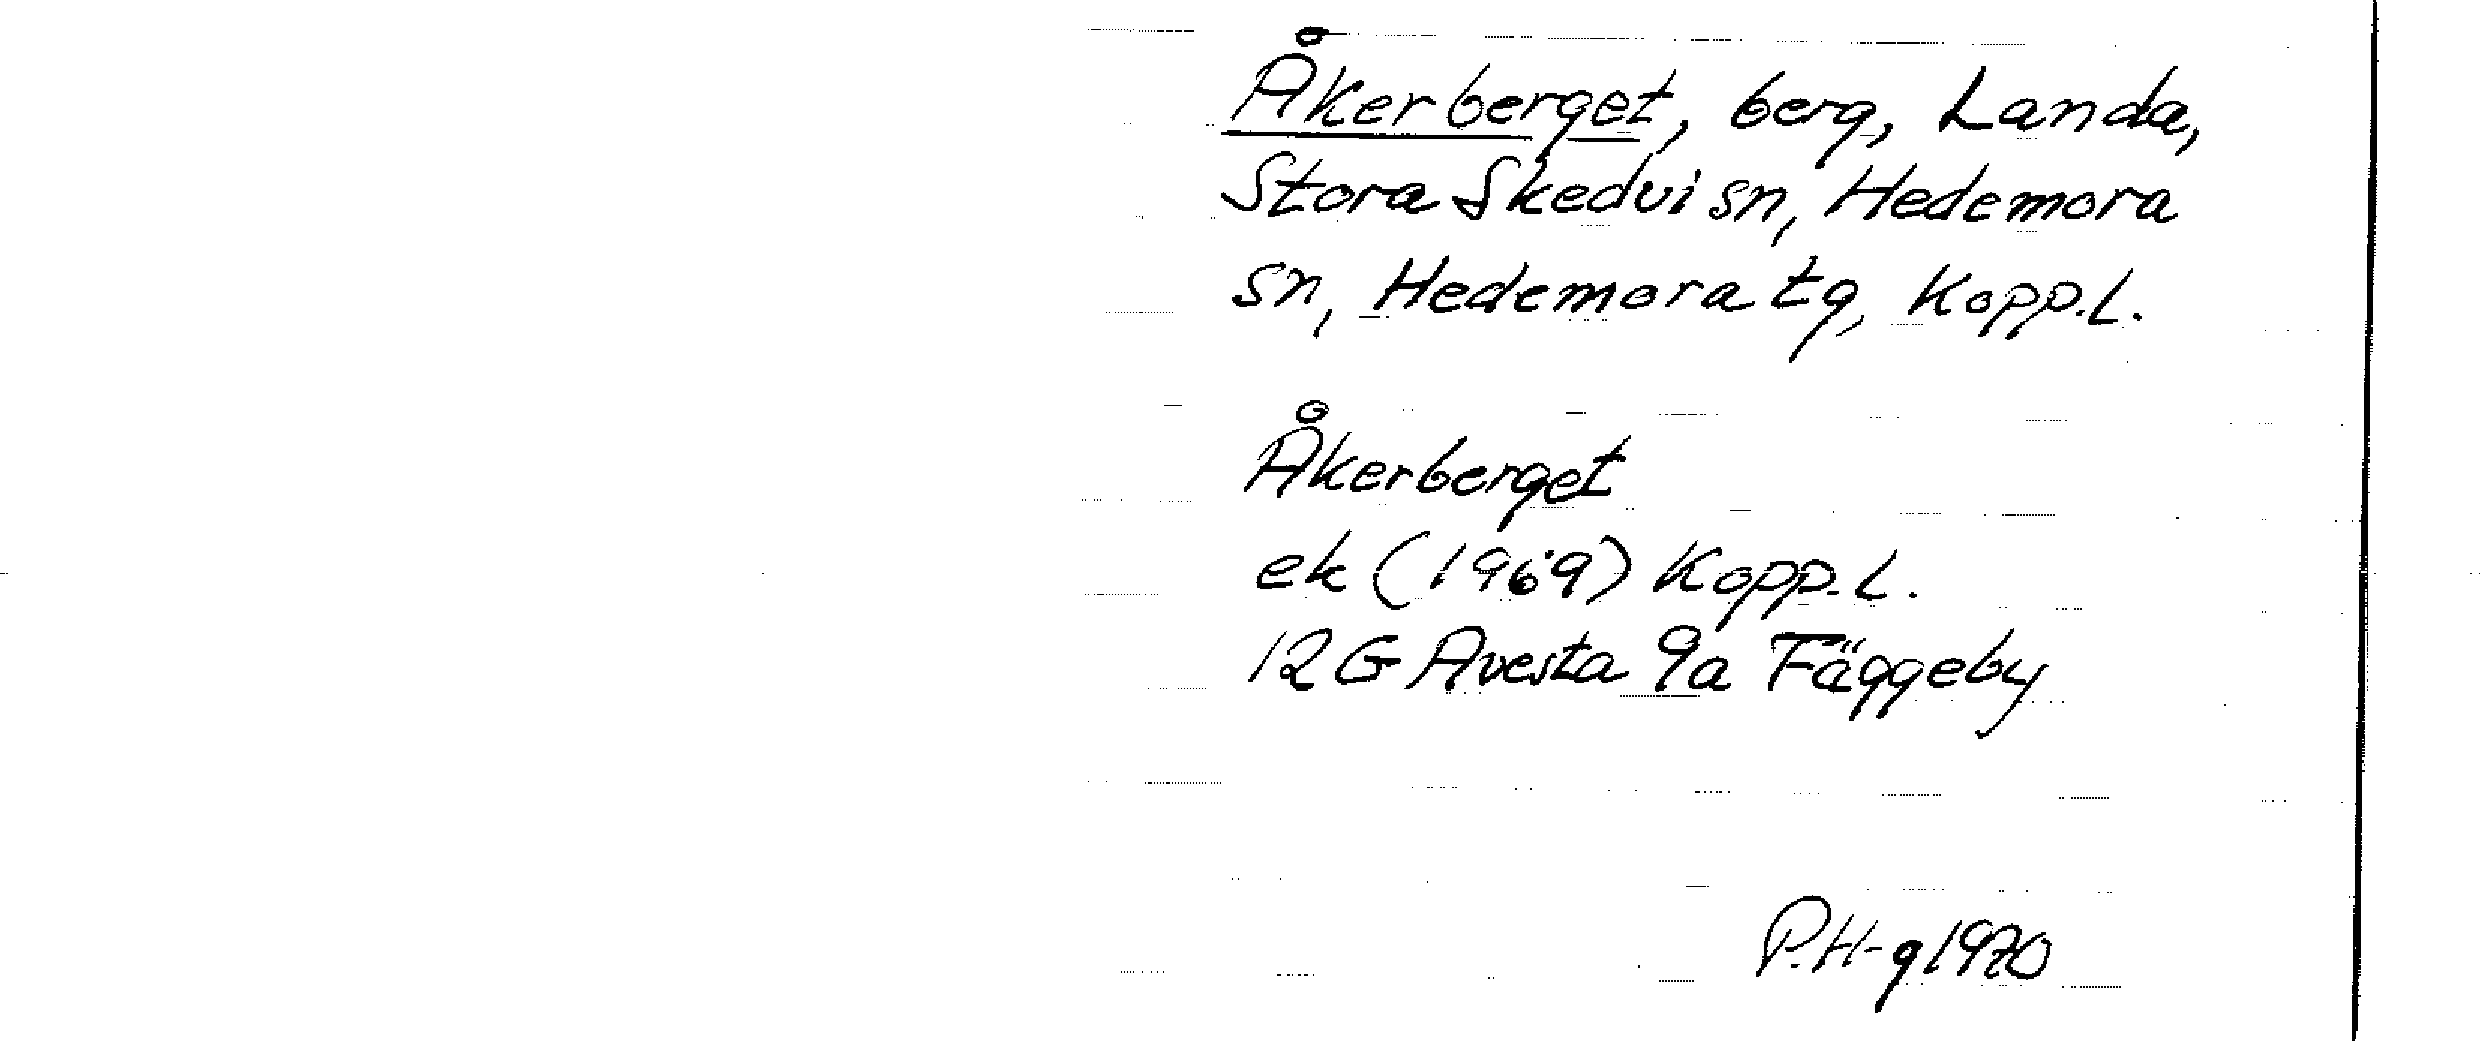 Åkerberget, berg, Landa,
Stora Skedvi sn, Hedemora
sn, Hedemora tg, Kopp.l.
Åkerberget
ek (1969) Kopp.l.
12G Avesta 9a Fäggeby
P.H-g 1970